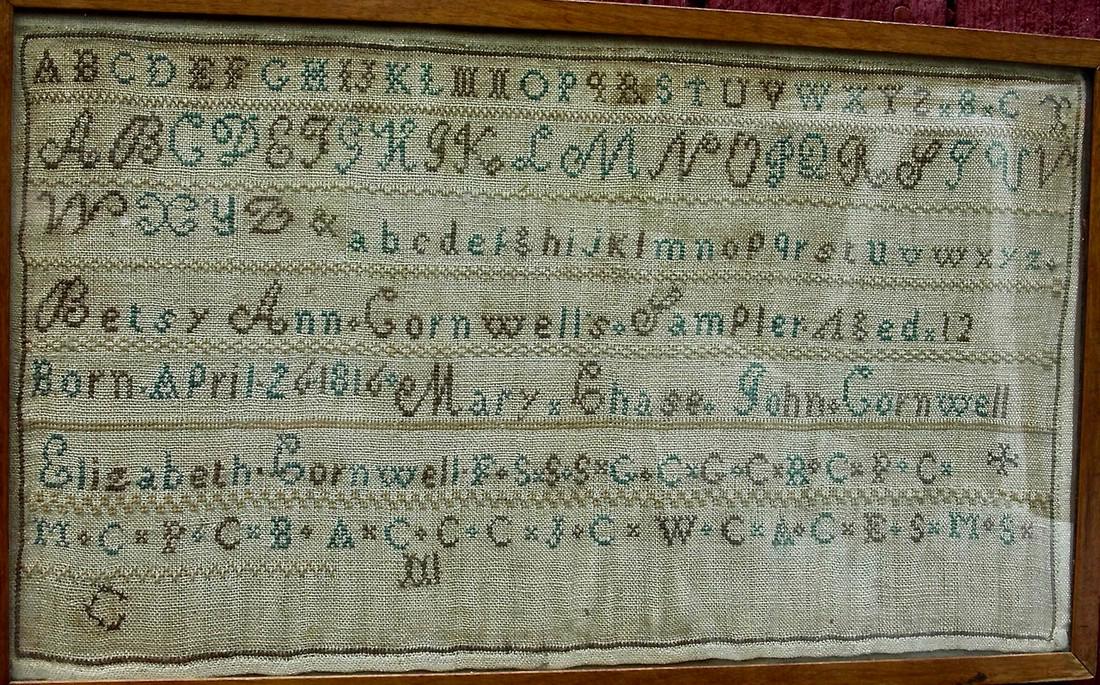 A B C D E F G H I J K L M N O P Q & S T U V W X Y Z B C
A B C D E F G H I K L M N O P Q R S T U V
W X Y Z & a b c d e f g h i j k l m n o p q r s t u v w x y z
Betsy Ann Cornwell's Sampler Aged 12
Born April 26 1816 Mary Chase John Cornwell
Elizabeth Cornwell F S S S G C G C R C P C
M C P C B A C C C J C W C A C E S M S
C